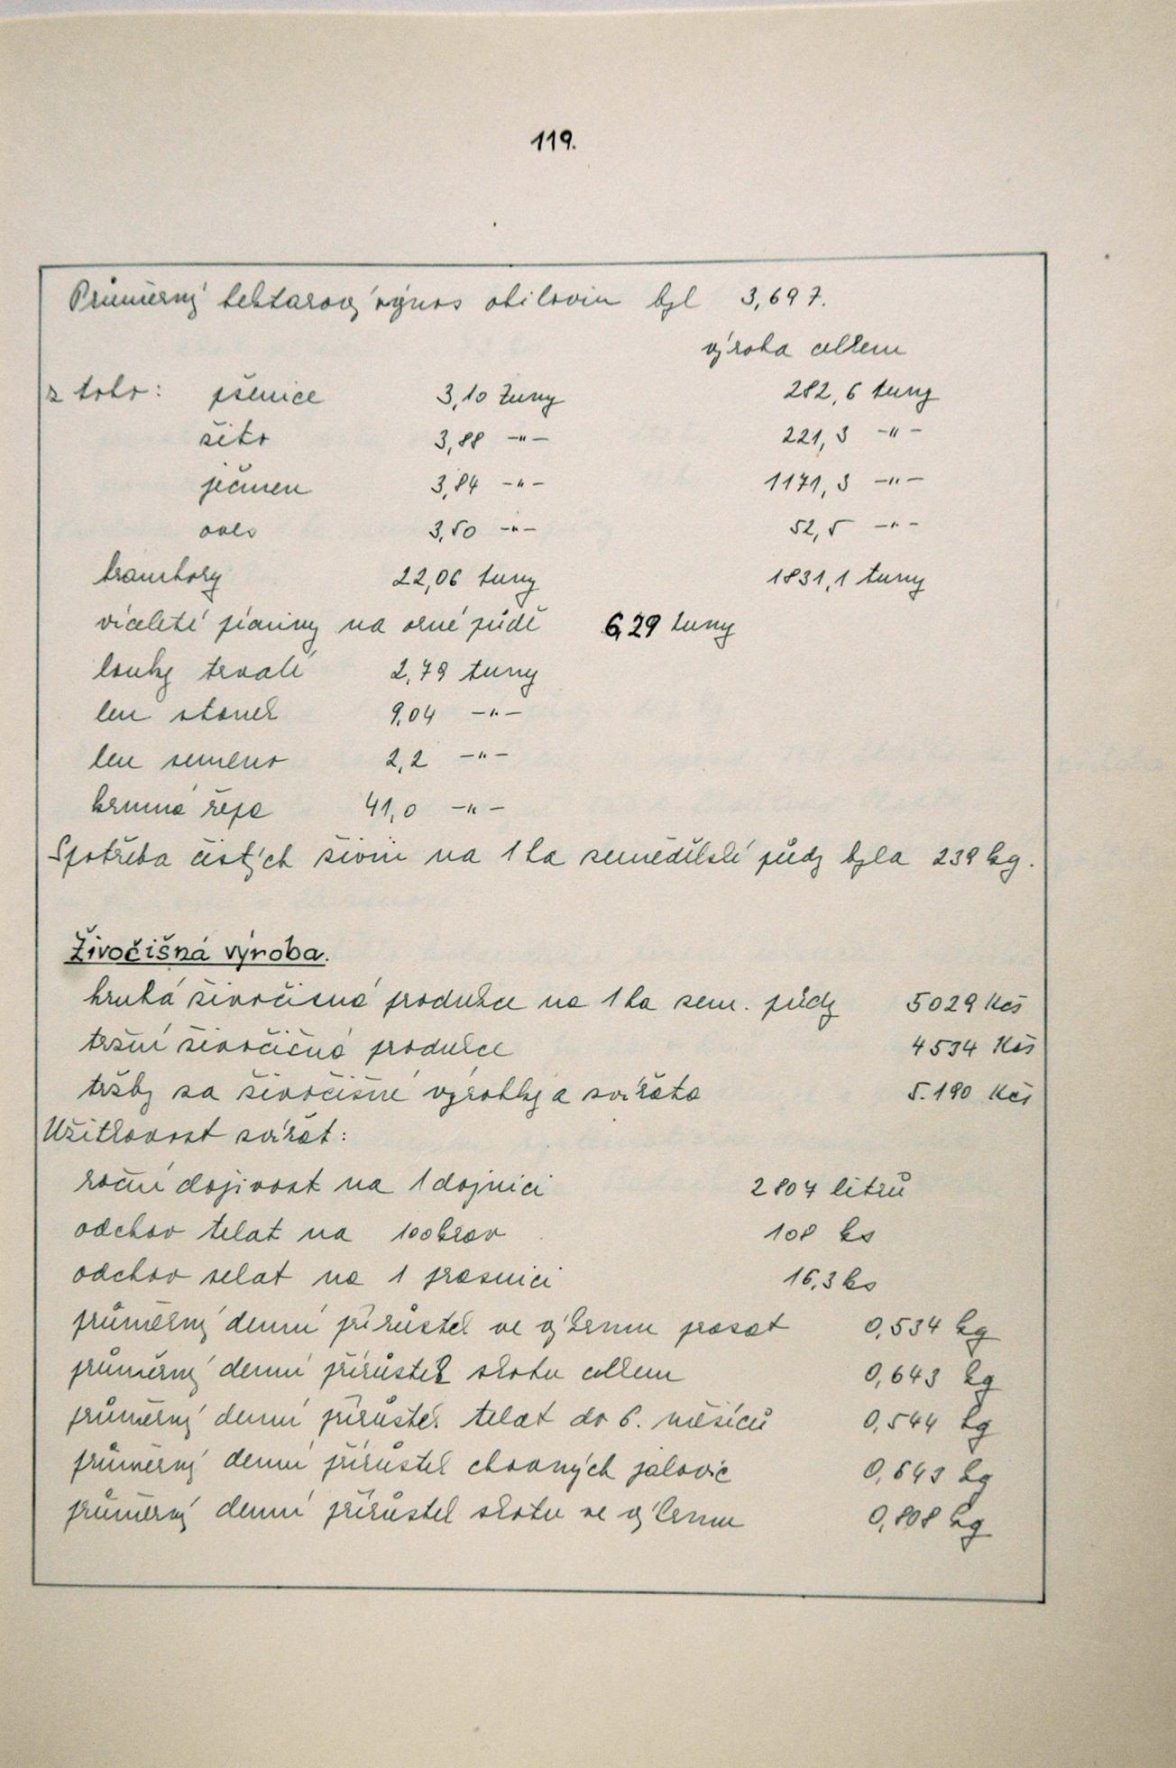 119.
Průměrný hektarový výnos obilovin byl 3,697.
výroba celkem
z toho: pšenice 3,10 tuny 282,6 tuny
žito 3,88 -"- 221,3 -"-
ječmen 3,84 -"- 1171,3 -"-
oves 3,50 -"- 52,5 -"-
brambory 22,06 tuny 1831,1 tuny
víceleté pícniny na orné půdě 6,29 tuny
louky trvalé 2,79 tuny
len stonek 9,04 -"-
len semeno 2,2 -"-
krmná řepa 41,0 -"-
Spotřeba čistých živin na 1 ha zemědělské půdy byla 239 kg.
Živočišná výroba.
hrubá živočišná produkce na 1 ha zem. půdy 5029 Kčs
tržní živočišná produkce 4534 Kčs
tržby za živočišné výrobky a zvířata 5.190 Kčs
Užitkovost zvířat:
roční dojivost na 1 dojnici 2807 litrů
odchov telat na 100 krav 108 ks
odchov selat na 1 prasnici 16,3 ks
průměrný denní přírůstek ve výkrmu prasat 0,534 kg
průměrný denní přírůstek skotu celkem 0,643 kg
průměrný denní přírůstek telat do 6. měsíců 0,544 kg
průměrný denní přírůstek chovných jalovic 0,643 kg
průměrný denní přírůstek skotu ve výkrmu 0,808 kg